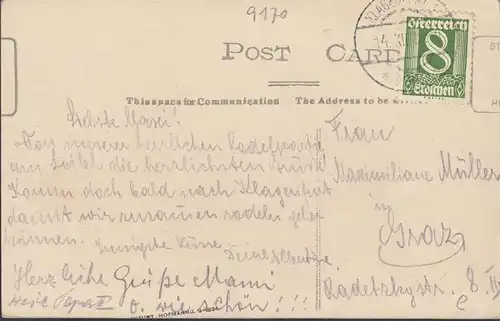 9170
POST CARD
KLAGENFURT
Österreich
8
Groschen
This space for Communication The Address to be
Liebste Marie!
Von unserer herrlichen Rodelpartie
am Loibl die herrlichsten Grüße
Komm doch bald nach Klagenfurt
damit wir zusammen rodeln gehen
können. Innigste Küsse
Deine
Herzliche Grüße Mami
o. wie schön!!!
Frau
Maximiliane Müller
in
Graz
Radetzkystr. 8